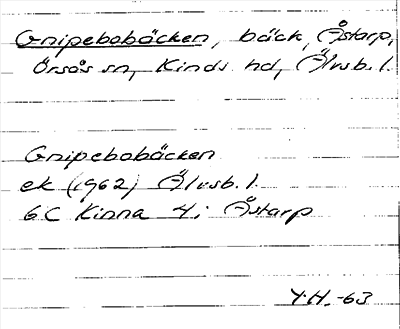 Gnipebobäcken, bäck, Åstarp,
Örsås sn, Kinds hd, Älvsb. l.
Gnipebobäcken
ek (1962) Älvsb. l.
6C Kinna 4 i Åstarp
Y.H. -63